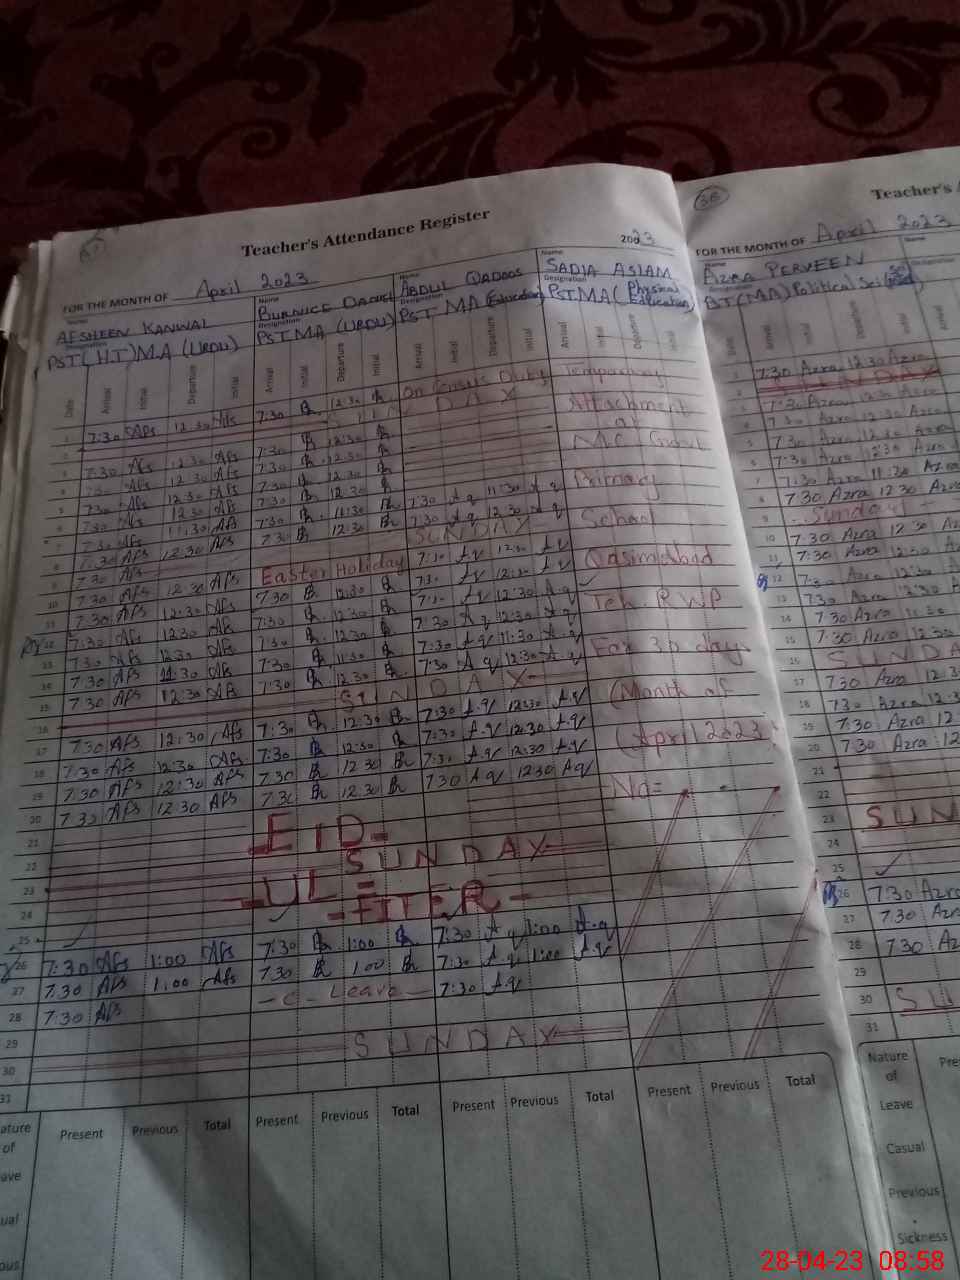 Teacher's Attendance Register
FOR THE MONTH OF April 2023 2023
Name Name Name Name
AFSHEEN KANWAL BURNICE DANIEL ABDUL QADOOS SADIA ASLAM
Designation Designation Designation Designation
PST(H.T) M.A (URDU) PST MA (URDU) PST MA (Education) PST MA (Physical Education)
Date Arrival Initial Departure Initial Arrival Initial Departure Initial Arrival Initial Departure Initial Arrival Initial Departure Initial
1 7:30 Afs 12:30 Afs 7:30 B 12:30 B On Census Duty Temporary
2 SUNDAY
3 7:30 Afs 12:30 Afs 7:30 B 12:30 B Attachment
4 7:30 Afs 12:30 Afs 7:30 B 12:30 B at
5 7:30 Afs 12:30 Afs 7:30 B 12:30 B M.C Govt
6 7:30 Afs 12:30 Afs 7:30 B 12:30 B
7 7:30 Afs 11:30 Afs 7:30 B 11:30 B 7:30 A.q 11:30 A.q Primary
8 7:30 Afs 12:30 Afs 7:30 B 12:30 B 7:30 A.q 12:30 A.q
9 SUNDAY School
10 7:30 Afs 12:30 Afs Easter Holiday 7:30 A.q 12:30 A.q Qasimabad
11 7:30 Afs 12:30 Afs 7:30 B 12:30 B 7:30 A.q 12:30 A.q
12 7:30 Afs 12:30 Afs 7:30 B 12:30 B 7:30 A.q 12:30 A.q Teh. RWP
13 7:30 Afs 12:30 Afs 7:30 B 12:30 B 7:30 A.q 12:30 A.q
14 7:30 Afs 11:30 Afs 7:30 B 11:30 B 7:30 A.q 11:30 A.q For 30 days
15 7:30 Afs 12:30 Afs 7:30 B 12:30 B 7:30 A.q 12:30 A.q
16 SUNDAY (Month of
17 7:30 Afs 12:30 Afs 7:30 B 12:30 B 7:30 A.q 12:30 A.q
18 7:30 Afs 12:30 Afs 7:30 B 12:30 B 7:30 A.q 12:30 A.q (April 2023)
19 7:30 Afs 12:30 Afs 7:30 B 12:30 B 7:30 A.q 12:30 A.q
20 7:30 Afs 12:30 Afs 7:30 B 12:30 B 7:30 A.q 12:30 A.q No=
21 EID-
22
23 SUNDAY
24 -UL=
25 -FITER-
26 7:30 Afs 1:00 Afs 7:30 B 1:00 B 7:30 A.q 1:00 A.q
27 7:30 Afs 1:00 Afs 7:30 B 1:00 B 7:30 A.q 1:00 A.q
28 7:30 Afs -C-Leave- 7:30 A.q
29
30 SUNDAY
31
Present Previous Total Present Previous Total Present Previous Total Present Previous Total
36
Teacher's
FOR THE MONTH OF April 2023
Name Name
AZRA PERVEEN
Designation
PST (M.A) Political Sci
Date Arrival Initial Departure Initial Arrival
1 7:30 Azra 12:30 Azra
2 SUNDAY
3 7:30 Azra 12:30 Azra
4 7:30 Azra 12:30 Azra
5 7:30 Azra 12:30 Azra
6 7:30 Azra 12:30 Azra
7 7:30 Azra 11:30 Azra
8 7:30 Azra 12:30 Azra
9 Sunday
10 7:30 Azra 12:30 Azra
11 7:30 Azra 12:30 Azra
12 7:30 Azra 12:30
13 7:30 Azra 12:30
14 7:30 Azra 11:30
15 7:30 Azra 12:30
16 SUNDA
17 7:30 Azra 12:30
18 7:30 Azra 12:3
19 7:30 Azra 12
20 7:30 Azra 12
21
22
23 SUN
24
25
26 7:30 Azra
27 7:30 Azra
28 7:30 Az
29
30 SU
31
Nature of Leave Pre
Casual
Previous
Sickness
28-04-23 08:58